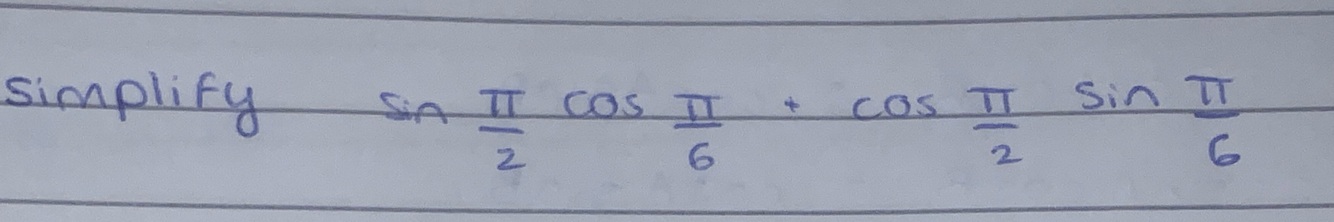 simplify sin π/2 cos π/6 + cos π/2 sin π/6